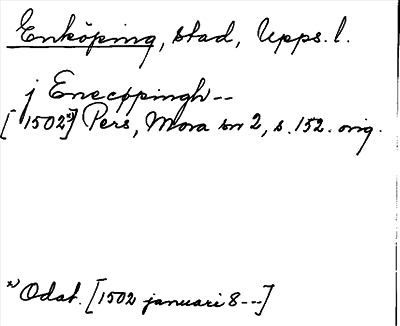 Enköping, stad, Upps. l.
j Enecøpingh--
[1502*)] Pers, Mora sn 2, s. 152. orig.
*) Odat. [1502 januari 8---]